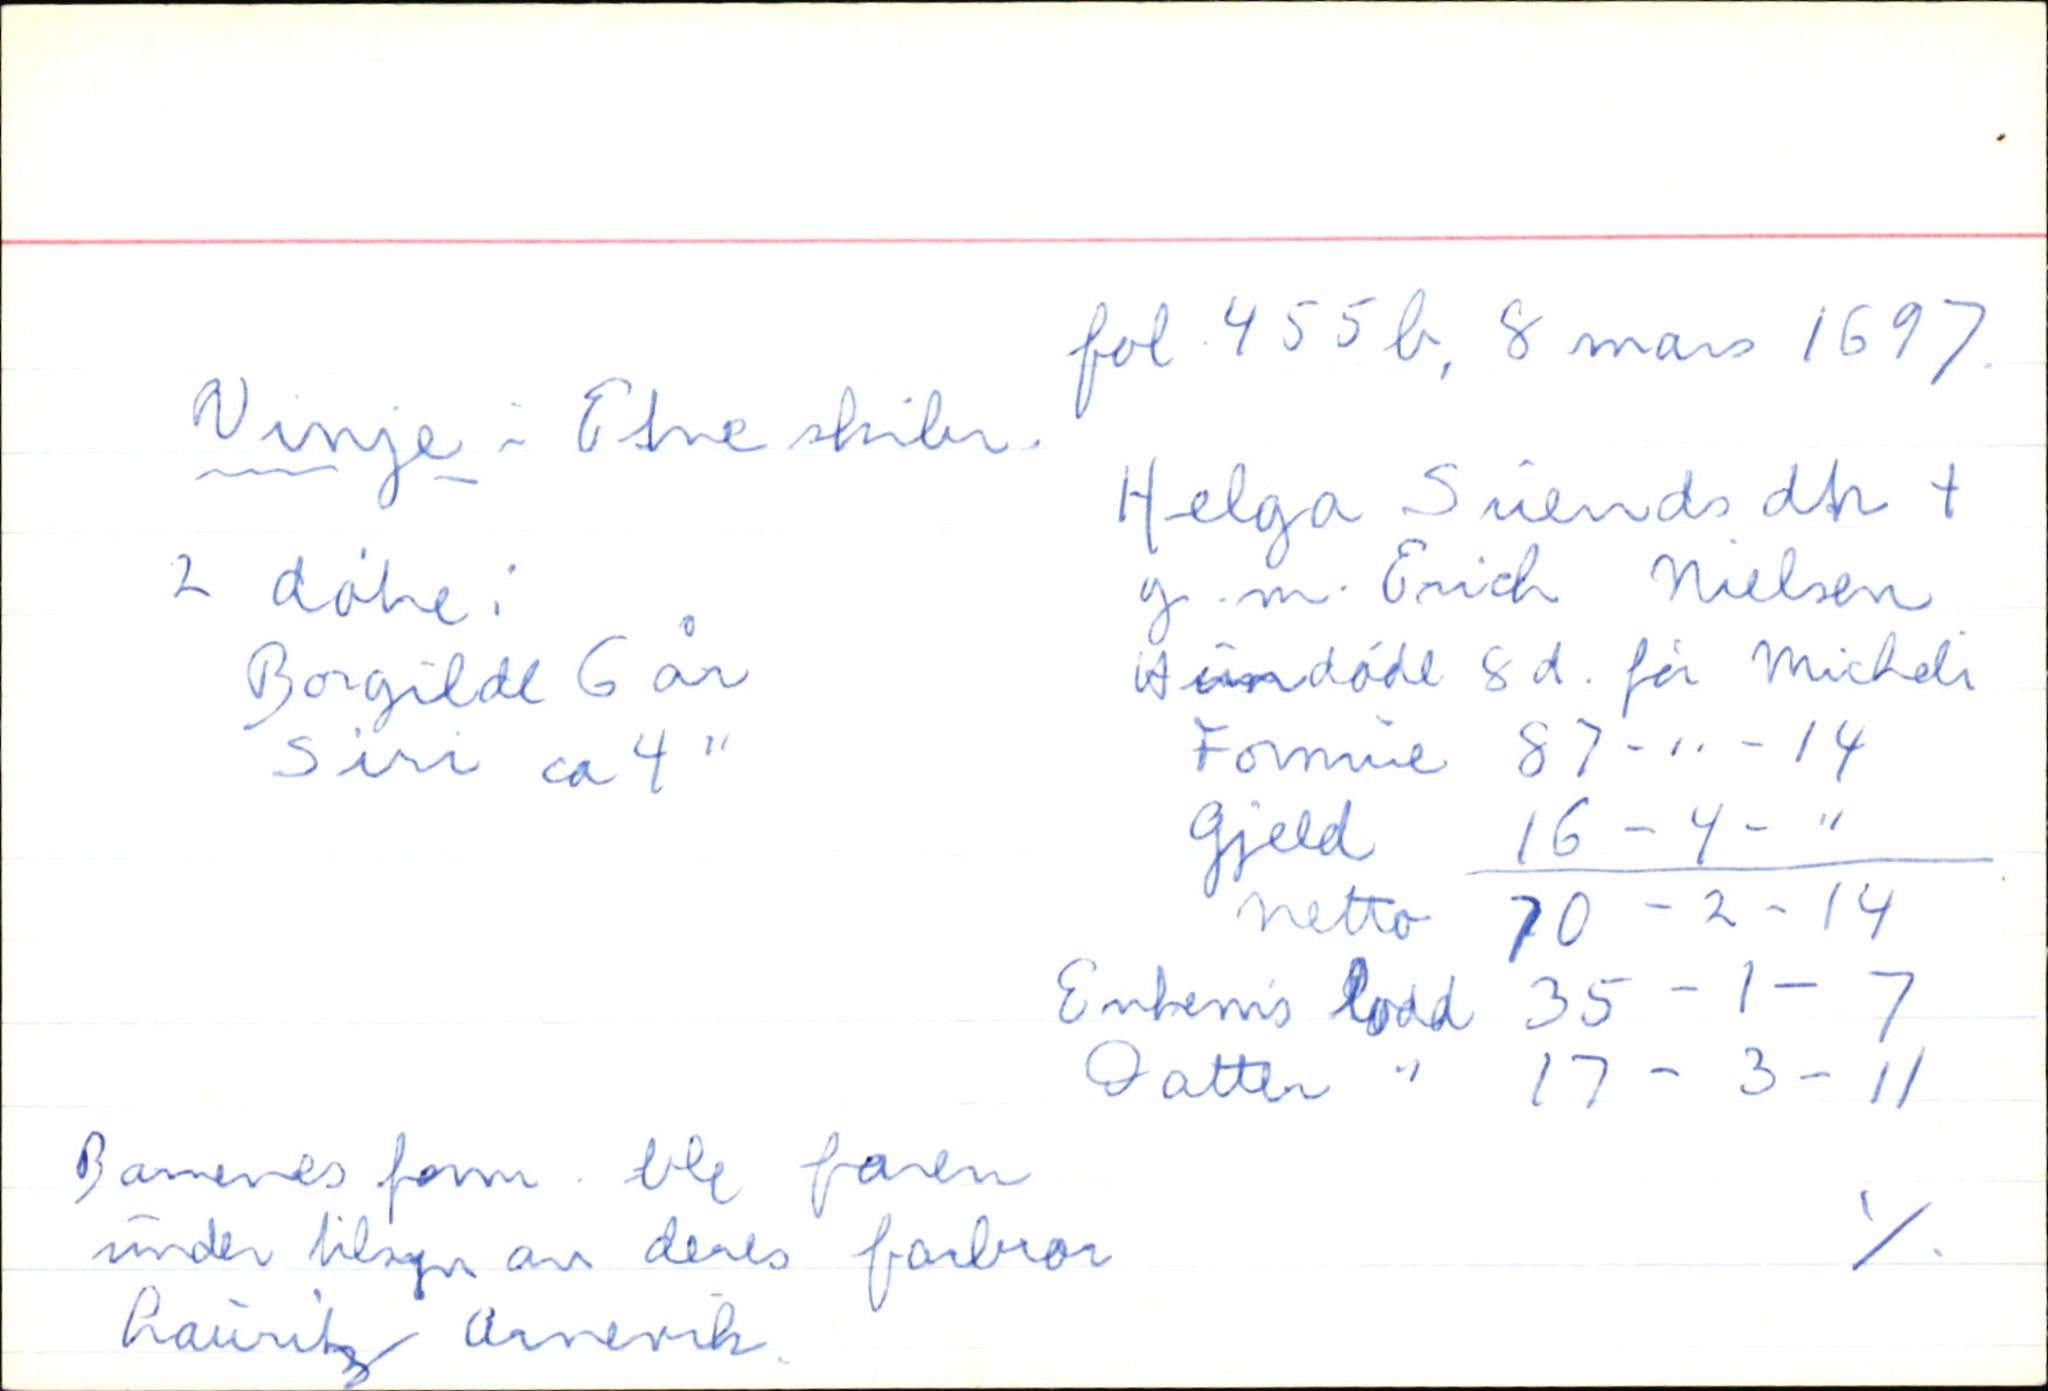 fol. 455b, 8 mars 1697.
Vinje i Etne skibr.
Helga Suends dtr †
g.m. Erich Nielsen
Hun døde 8 d. før Micheli
2 døtre:
Borgilde 6 år
Siri ca 4 "
Formue 87 - " - 14
Gjeld 16 - 4 - "
Netto 70 - 2 - 14
Enkem's lodd 35 - 1 - 7
Datter " 17 - 3 - 11
Barnenes form. ble faren
under tilsyn av deres farbror
Lauritz Arnevik.
./.